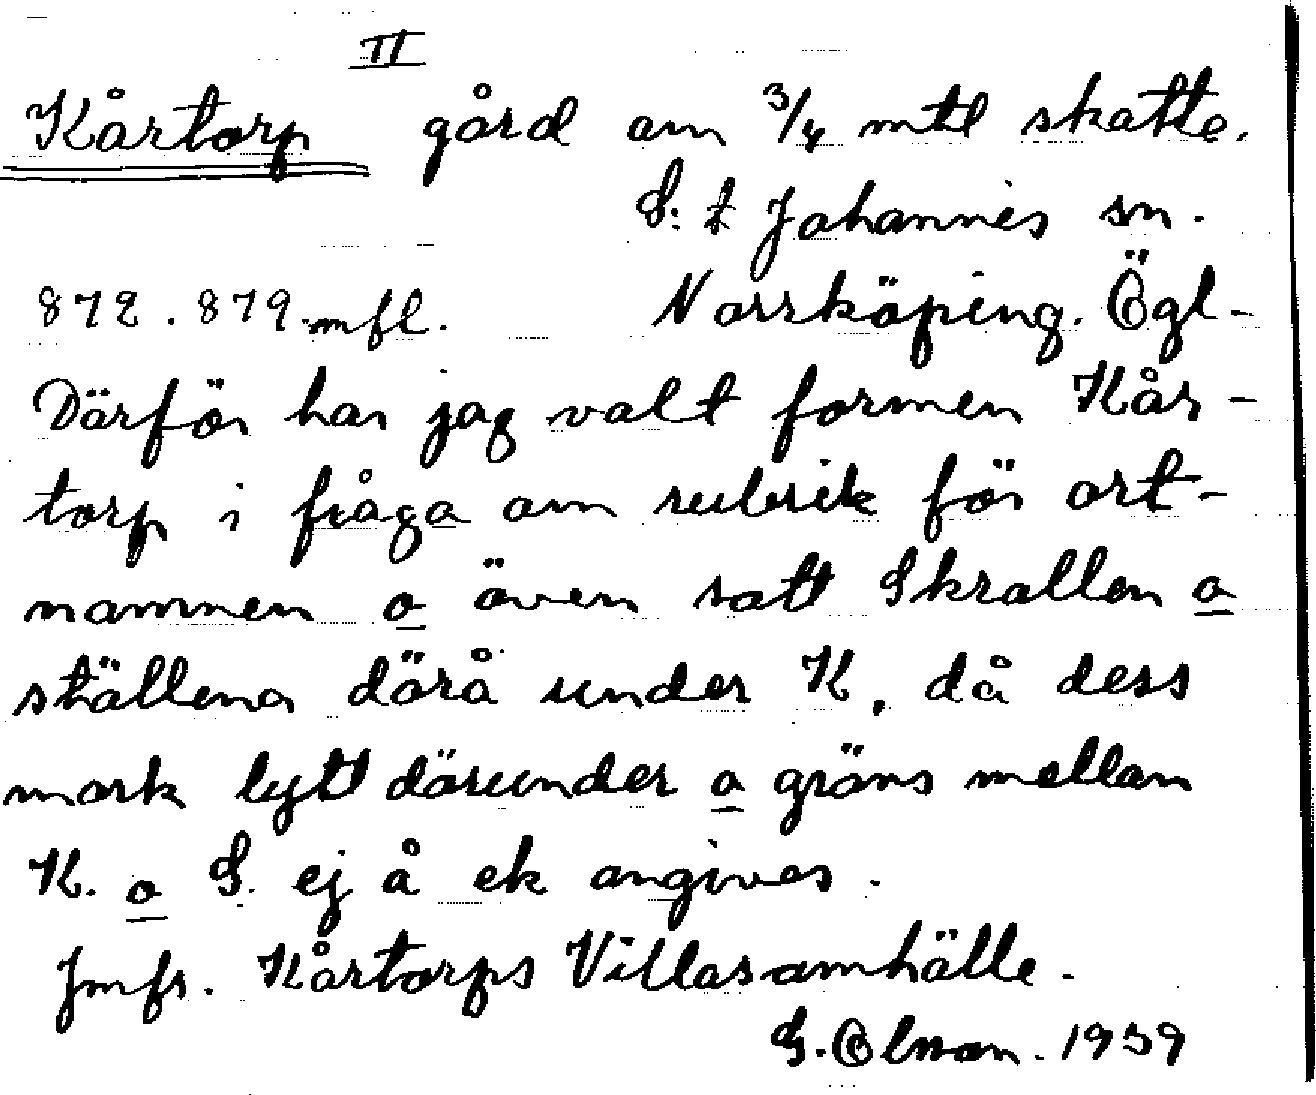 II
Kårtorp gård om 3/4 mtl skatte.
S:t Johannes sn.
872. 879. mfl. Norrköping. Ögl-
Därför har jag valt formen Kår-
torp i fråga om rubrik för ort-
namnen o även satt Skrallen o
ställena därå under K, då dess
mark lytt därunder o gräns mellan
K. o S. ej å ek angives.
Jmfr. Kårtorps Villasamhälle.
G. Olson. 1939